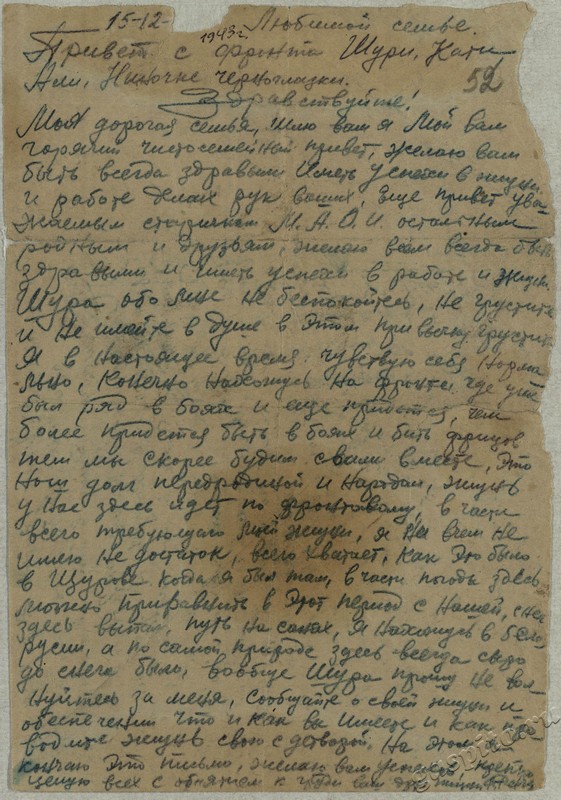 15-12- 1943 г. Любимой семье.
Привет с фронта Шури, Кати
Али, Ниночке черноглазки.
52
Здравствуйте!
Моя дорогая семья, шлю вам я Мой вам
горячий чистосемейный привет, желаю вам
быть всегда здравыми Иметь успехи в жизни
и работе делах рук ваших, Еще привет ува-
жаемым старичкам М.А.О.И. остальным
родным и друзьям, желаю всем всегда быть
здравыми и иметь успехи в работе и жизни.
Шура обо мне Не беспокойтесь, Не грустите
и Не имейте в душе в Этом привычку грустить
Я в Настоящее время чувствую себя Норма
льно, Конечно Нахожусь На фронте где уже
был ряд в боях и еще придется, чем
более придется быть в боях и бить фрицов
тем мы скорее будим свами вместе, Это
Наш долг передродиной и Народам, жизнь
у Нас здесь идет по фронтовому, в части
всего требующего моей жизни, я Ни в чем Не
имею Не достаток, всего хватает, Как Это было
в Щурове когда я был там, в части погоды здесь
можно приравнить в Этот период с Нашей, снег
здесь путь На санях, Я Нахожусь в Бело
русии, а по самой природе здесь всегда сыро
до снега было, вообще Шура прошу Не вол-
Нуйтесь за меня, сообщайте о своей жизни и
обеспечении что и как вы Имеете и как про
водите жизнь свою с детворой, На этом
кончаю Это письмо, желаю вам успехов, крепко
целую всех с обнятием к груди ваш